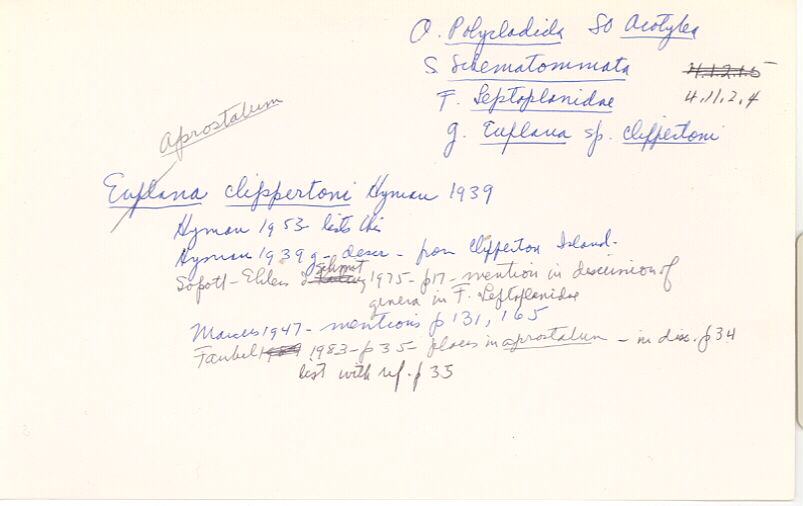 O. Polycladida SO Acotylea
S. Schematommata 4.1.2.15
F. Leptoplanidae 4.11.2.4
g. Euplana sp. clippertoni
aprostatum
Euplana clippertoni Hyman 1939
Hyman 1953 lists this
Hyman 1939g - descr - from Clipperton Island.
Sopott-Ehlers & Schmidt 1975 - p17 - mention in discussion of
genera in F. Leptoplanidae
Marcus 1947 - mentions p 131, 165
Faubel 1983 - p 35 - places in aprostatum - in disc. p 34
list with ref. p 35